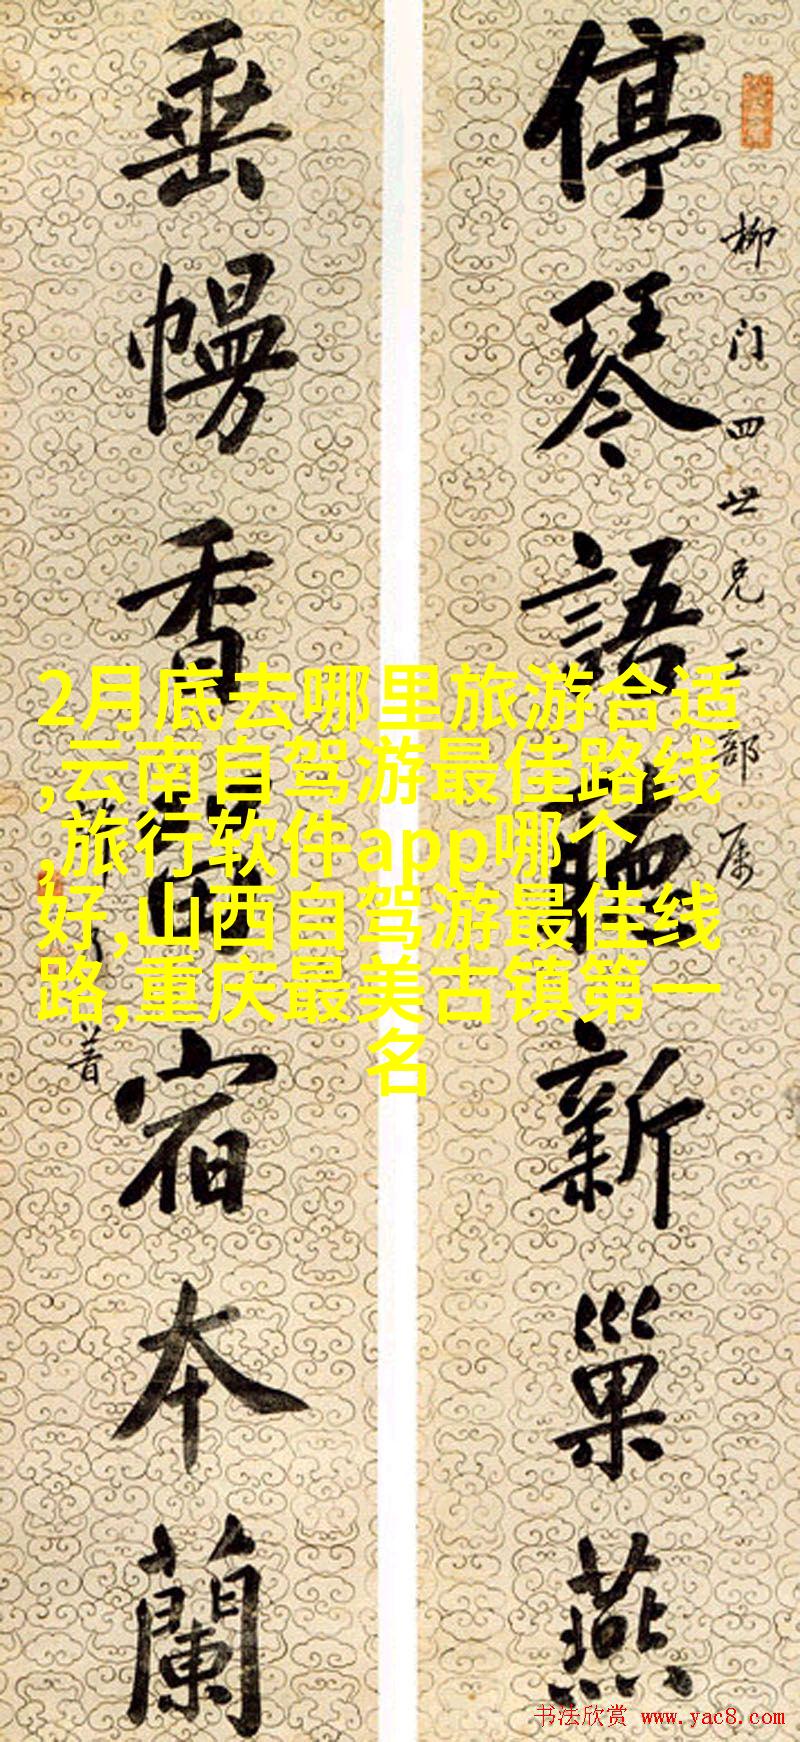 停琴語新巢燕
柳门四世兄工部属
垂幔香宿本蘭
2月底去哪里旅游合适
,云南自驾游最佳路线
,旅行软件app哪个
好,山西自驾游最佳线
路,重庆最美古镇第一
名
书法欣赏 www.yac8.com